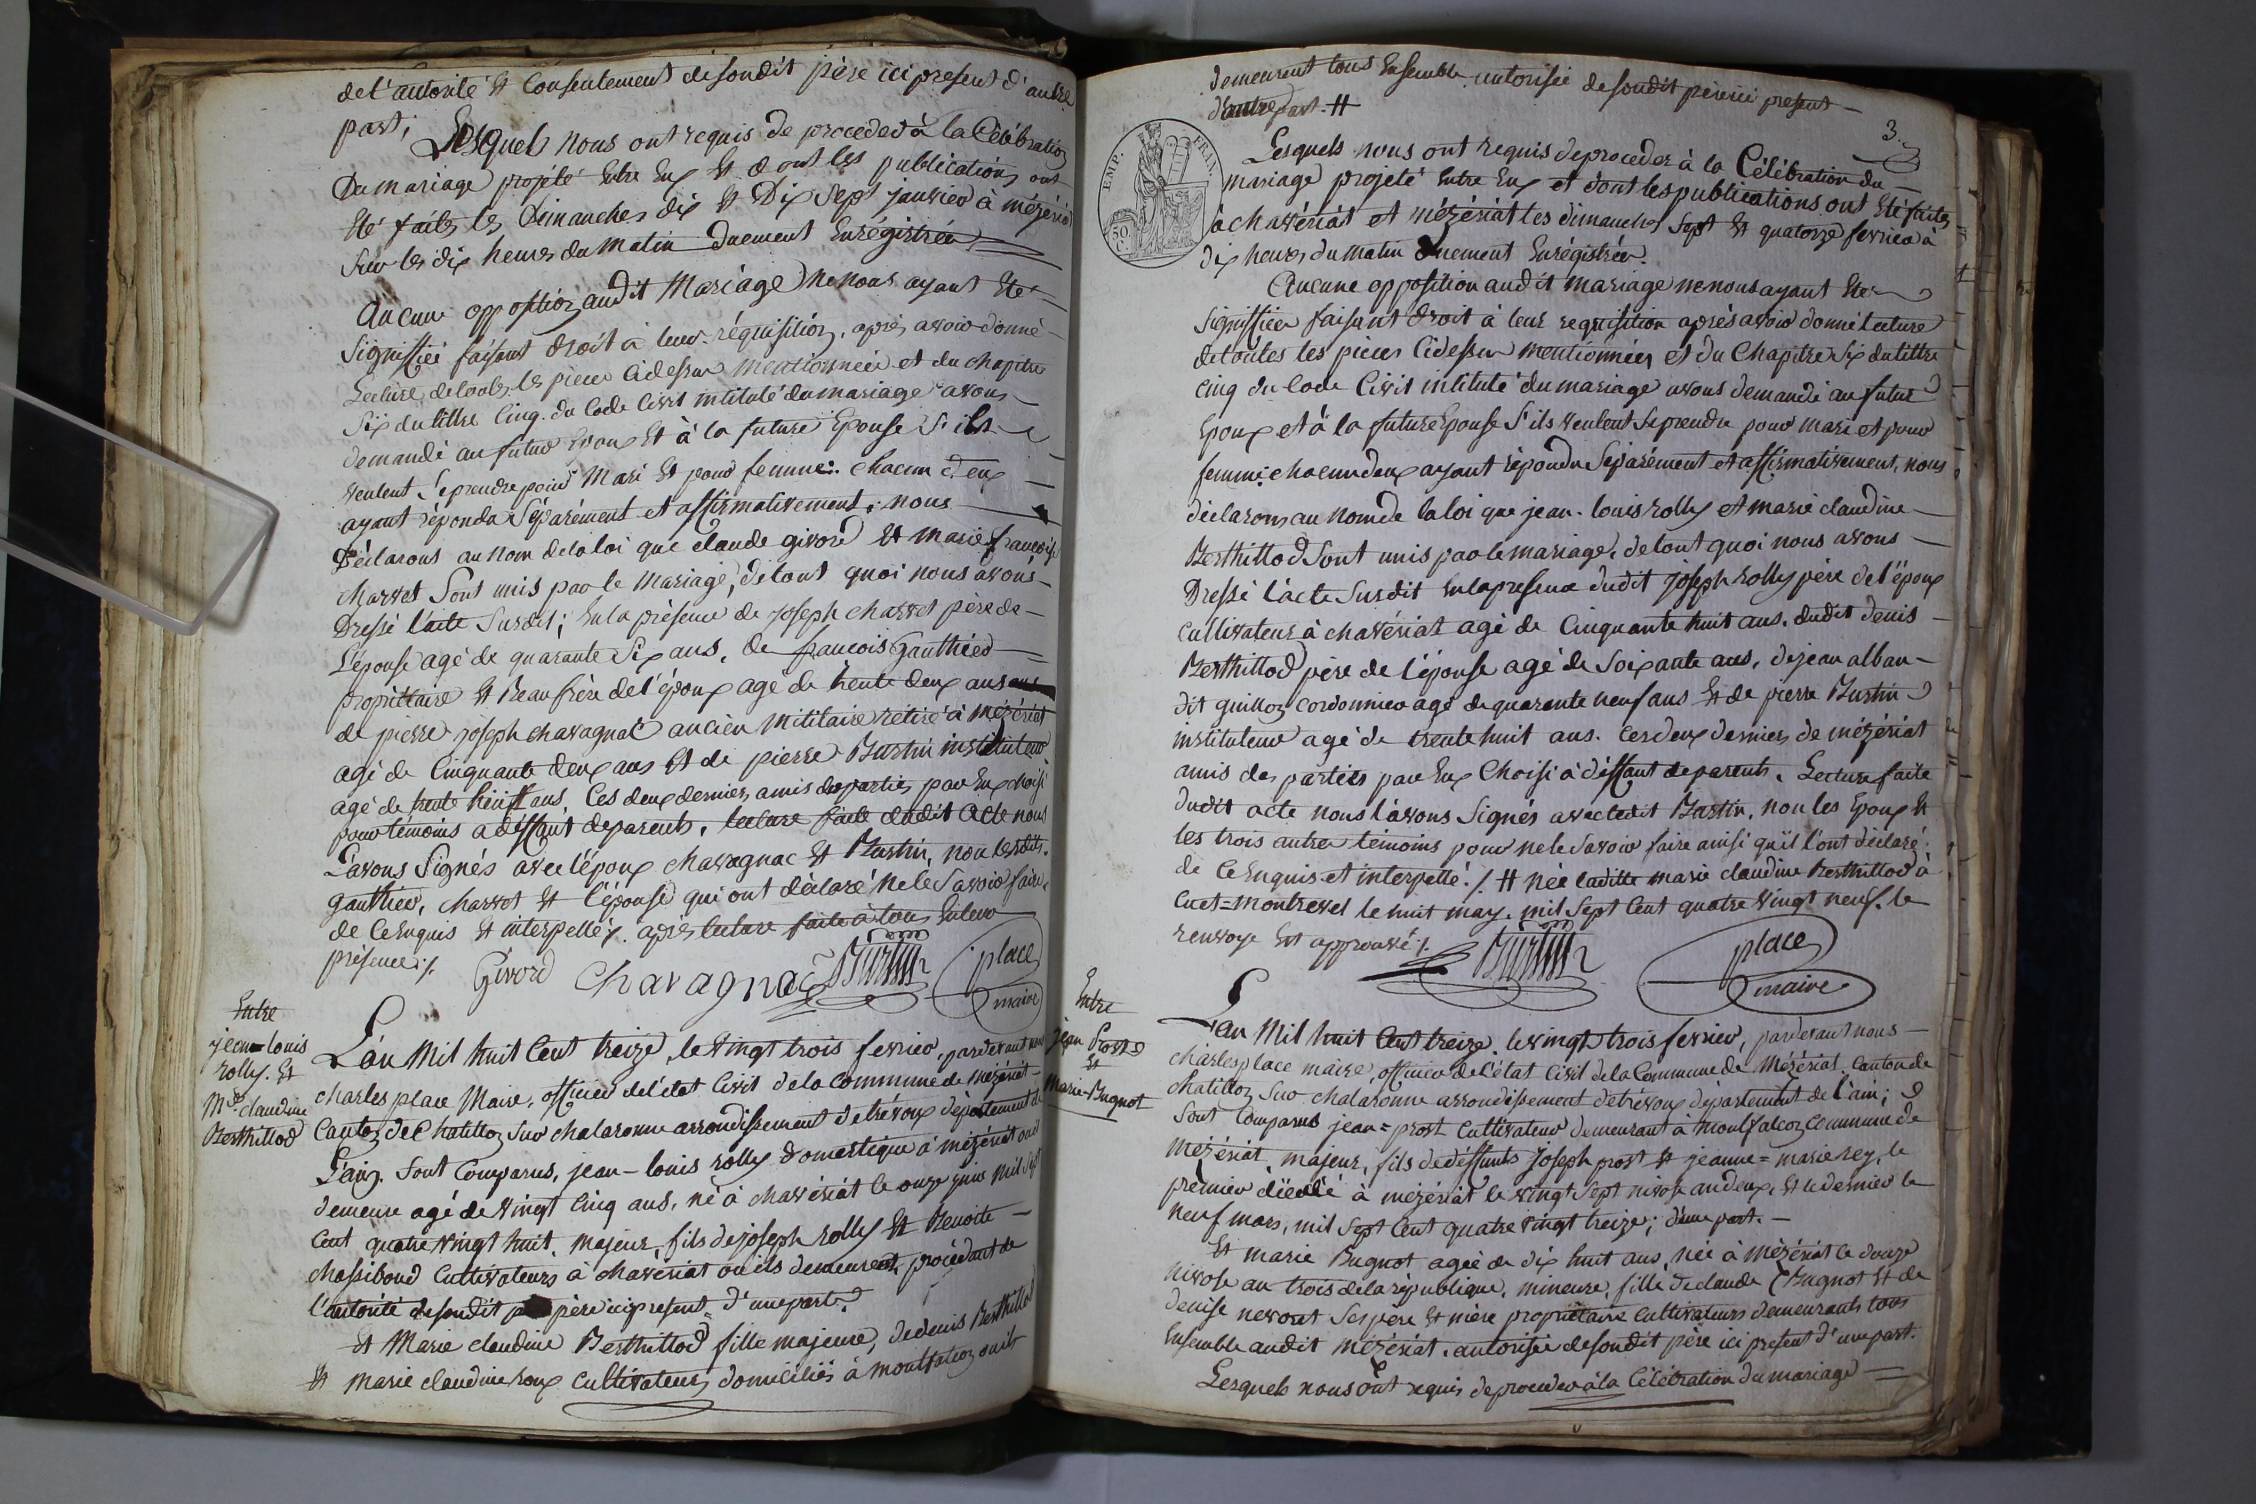 de l'autorité et Consentement de sondit père ici present d'autre
part;
Lesquels nous ont requis de proceder à la Célébration
du mariage projeté Entre Eux Et dont les publications ont
Eté faites les Dimanches dix Et Dix Sept janvier à mézériat
Sur les dix heures du matin duement Enrégistrées
Aucune opposition audit Mariage ne nous ayant Eté
Signiffiée faisant droit à leur réquisition, après avoir donné
Lecture de toutes les pieces Cidessus mentionnées et du chapitre
Six du tittre Cinq. du Code Civil intitulé du mariage avons
demandé au futur Epoux Et à la future Epouse S'ils
veulent Se prendre pour Mari Et pour femme: chacun d'eux
ayant répondu Séparément et affirmativement; nous
déclarons au nom de la loi que claude givord Et marie françoise
charvet Sont unis par le mariage, de tout quoi nous avons
Dressé l'acte Susdit; En la présence de joseph charvet père de
L'épouse agé de quarante Six ans, de françois Gauthier
propriettaire Et Beaufrère de l'époux agé de trente deux ans
de pierre joseph chavagnac ancien militaire retiré à mézériat
agé de Cinquante deux ans Et de pierre Burtin instituteur
agé de trente huit ans, Ces deux derniers amis des parties par Eux choisi
pour témoins a déffaut de parents, lecture faite dudit acte nous
L'avons Signés avec l'époux chavagnac Et Burtin, non lesdits
gauthier, charvet Et l'épouse qui ont déclaré ne le Savoir faire
de Ce Enquis Et interpellé ./. après lecture faite à tous En leur
présence ./.
Givord Chavagnac Burtin place
maire
Entre
jean-louis
rolly. Et
Mie claudine
Berthillod
L'an Mil huit Cent treize, le vingt trois fevrier, pardevant nous
charles place Maire, officier de l'état Civil de la Commune de Mézériat
Canton de Chatillon Sur chalaronne arrondissement de trévoux département de
L'ain. Sont Comparus, jean-louis rolly domestique à mézériat ou il
demeure agé de vingt Cinq ans, né à chavériat le onze juin mil Sept
Cent quatre vingt huit, majeur, fils de joseph rolly Et Benoite
chassiboud Cultivateurs à chavériat ou ils demeurent, procédant de
l'autorité de sondit père ici present = d'une part.
Et Marie claudine Berthillod fille majeure, de denis Berthillod
Et marie claudine roux Cultivateurs domiciliés à montfalcon ou ils
demeurent tous Ensemble autorisée de sondit père ici present
d'autre part. #
3.
EMP. FRAN.
50
C.
Lesquels nous ont requis de proceder à la Célébration du
mariage projeté Entre Eux et dont les publications ont Eté faites
à chavériat et mézériat les dimanches Sept Et quatorze fevrier à
dix heures du matin duement Enrégistrées.
Aucune opposition audit mariage ne nous ayant Eté
Signiffiée faisant droit à leur requisition après avoir donné lecture
de toutes les pieces Cidessus mentionnées et du Chapitre Six du tittre
Cinq du Code Civil intitulé du mariage avons demandé au futur
Epoux et à la future Epouse S'ils veulent Se prendre pour mari et pour
femme: chacun deux ayant répondu Séparément et affirmativement, nous
déclarons au nom de la loi que jean-louis rolly et marie claudine
Berthillod Sont unis par le mariage, de tout quoi nous avons
Dressé l'acte Susdit En la presence dudit joseph rolly père de l'époux
Cultivateur à chavériat agé de Cinquante huit ans. dudit denis
Berthillod père de l'épouse agé de Soixante ans, de jean alban
dit guillon cordonnier agé de quarante neuf ans Et de pierre Burtin
instituteur agé de trente huit ans. Ces deux derniers de mézériat
amis des parties par Eux Choisi à déffaut de parents. Lecture faite
dudit acte nous l'avons Signés avec ledit Burtin, non les Epoux Et
les trois autres témoins pour ne le Savoir faire ainsi qu'il l'ont déclaré
de Ce Enquis et interpellé ./. # née laditte marie claudine Berthillod à
Cuet=montrevel le huit may. mil Sept Cent quatre vingt neuf. le
renvoye Est approuvé ./.
Burtin place
maire
Entre
jean Prost
Et
Marie Bugnot
L'an Mil huit Cent treize. le vingt trois fevrier, pardevant nous
charles place maire, officier de l'état Civil de la Commune de Mézériat Canton de
Chatillon Sur chalaronne arrondissement de trévoux département de l'ain;
Sont Comparus jean=prost Cultivateur demeurant à montfalcon Commune de
mézériat, majeur, fils de déffunts joseph prost Et jeanne=marie rey, le
premier décédé à mézériat le vingt Sept nivose an deux, Et le dernier le
neuf mars, mil Sept Cent quatre vingt treize; d'une part.
Et marie Bugnot agée de dix huit ans, née à mézériat le douze
nivose an trois de la république, mineure, fille de claude Bugnot Et de
denise nevoret Ses père Et mère propriétaire Cultivateurs demeurants tous
Ensemble audit mézériat. autorisée de sondit père ici present d'une part.
Lesquels nous ont requis de proceder à la Célébration du mariage